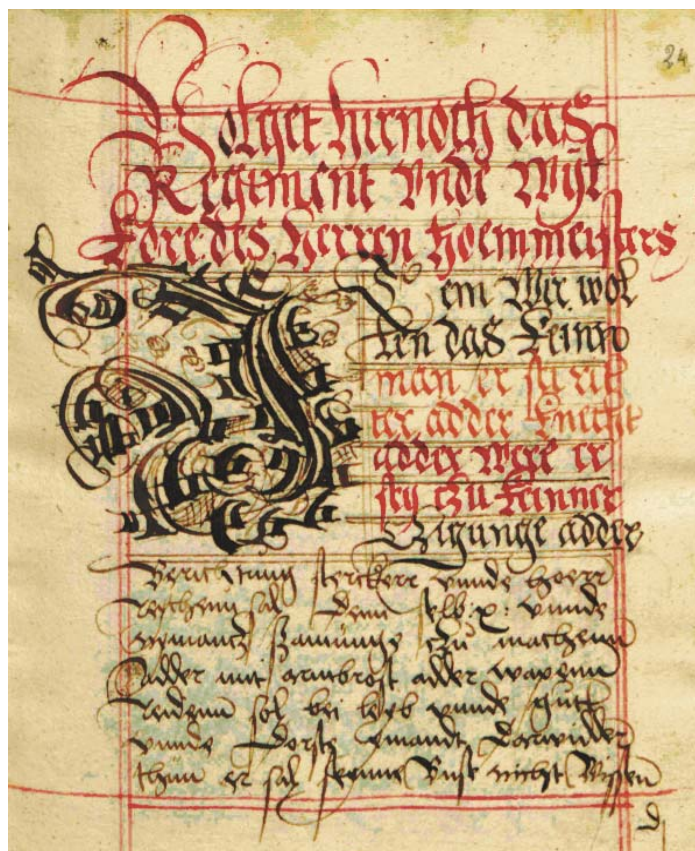 24
Volget hirnoch das
Regiment vnde wyl
kore des herren hoemmeisters
Item Wir wol
len das keinn
man er sey rit
ter adder knecht
adder were er
sey czu keinner
Czihunge adder
Berichtung stercker vnnde hoerr
reithenn sal denn selb x vnnde
nymantz samunge czu machenn
adder mit armbrost adder wapenn
reidenn sol bei leyb vnnde gutt
vnnde dorste ymandt dorwidder
thun er sal seyne Bust nicht wissen